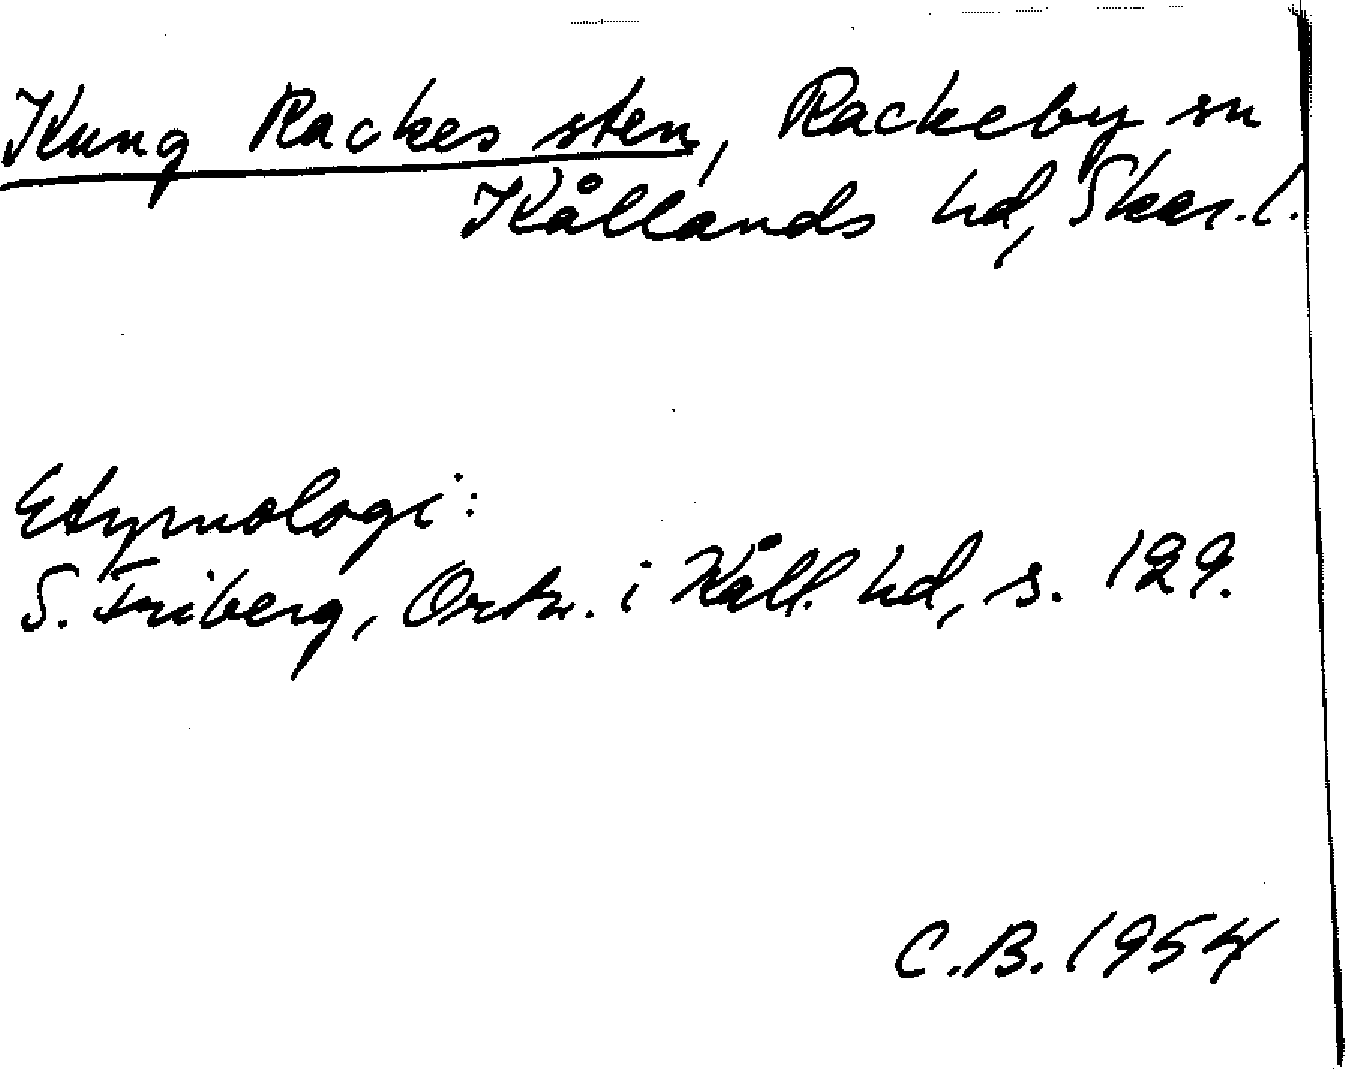 Kung Rackes sten, Rackeby sn
Kållands hd, Skar. l.
Etymologi:
S. Friberg, Ortn. i Kåll. hd, s. 129.
C.B. 1954